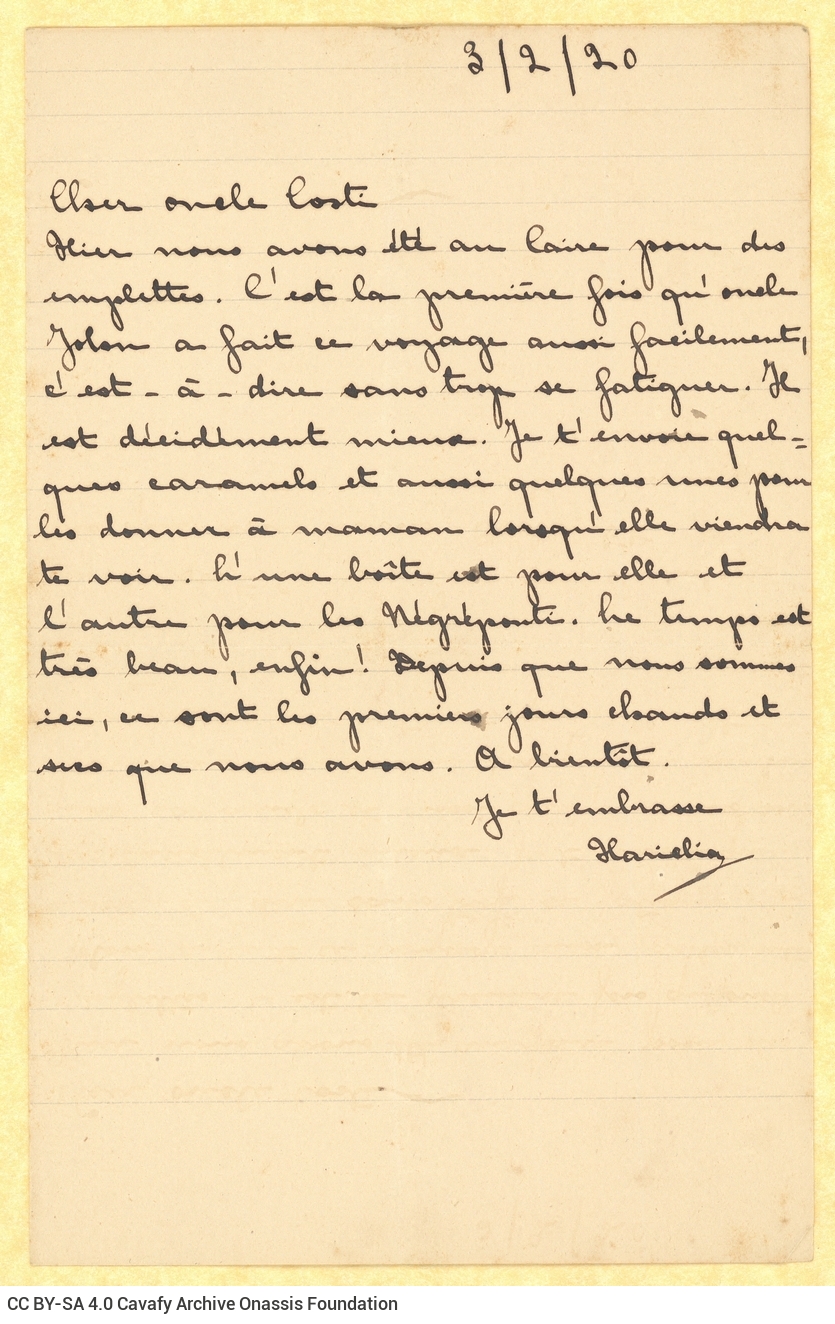 3/2/20
Cher oncle Costi
Hier nous avons été au Caire pour des
emplettes. C'est la première fois qu'oncle
John a fait ce voyage aussi facilement,
c'est-à-dire sans trop se fatiguer. Il
est décidément mieux. Je t'envoie quel=
ques caramels et aussi quelques unes pour
les donner à maman lorsqu'elle viendra
te voir. L'une boîte est pour elle et
l'autre pour les Négréponti. Le temps est
très beau, enfin! Depuis que nous sommes
ici, ce sont les premiers jours chauds et
secs que nous avons. A bientôt.
Je t'embrasse
Hariclia
CC BY-SA 4.0 Cavafy Archive Onassis Foundation